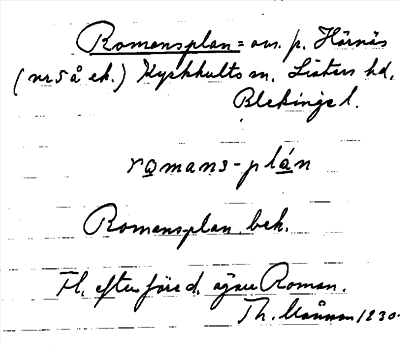 Romansplan = om. p. Härnäs
(nr 5 å ek.) Kyrkhults sn. Listers hd.
Blekinge l.
romans-plán
Romansplan. bek.
Tl. efter föred. ägare Roman.
Th. 1230.